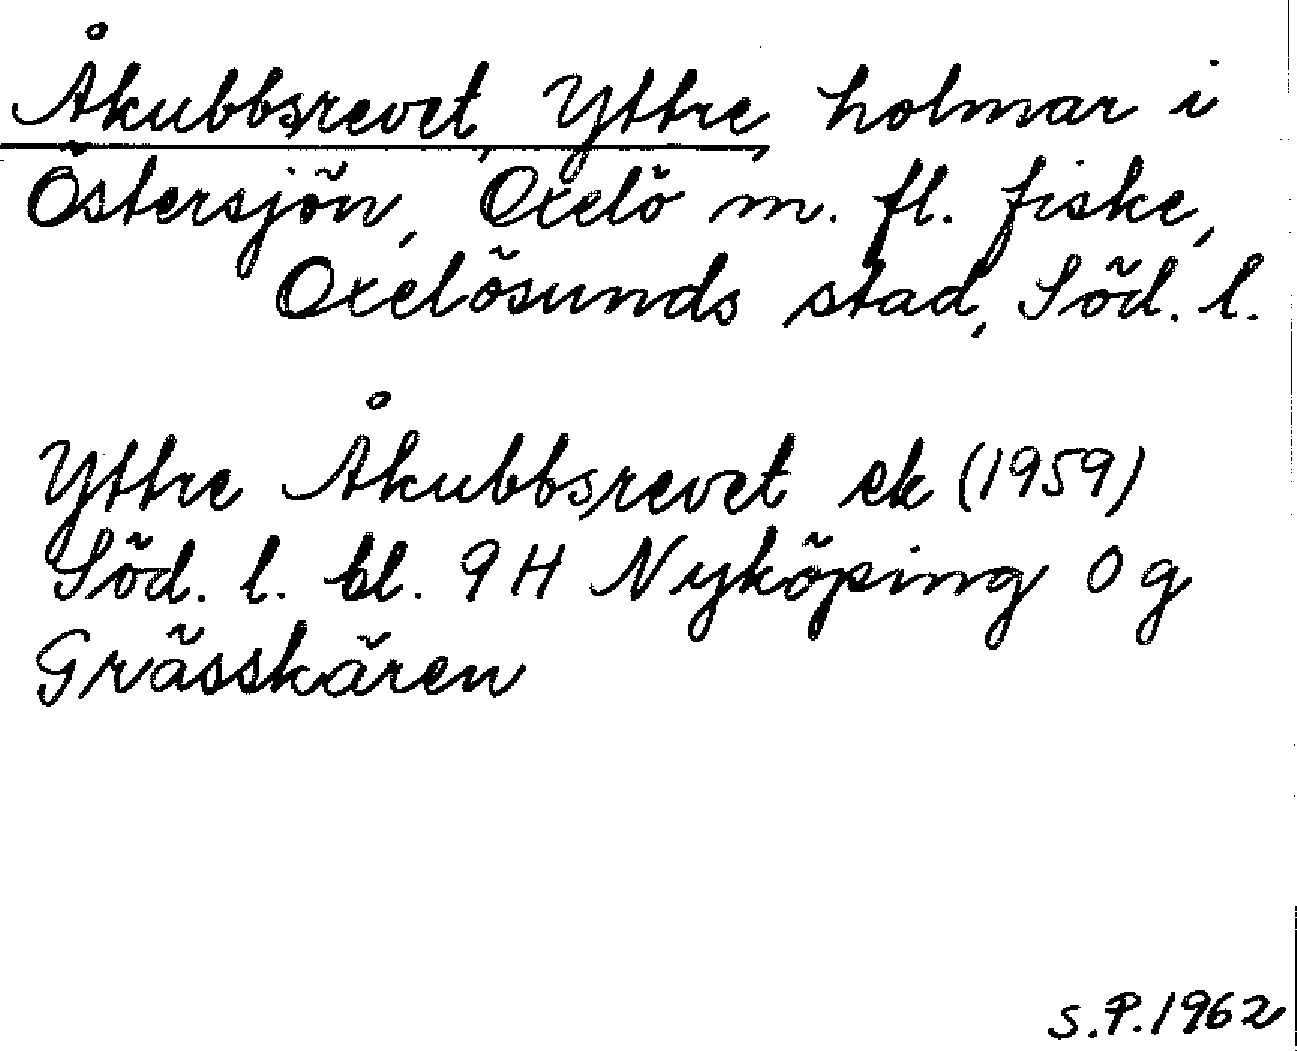 Åkubbsrevet, Yttre, holmar i
Östersjön, Oxelö m. fl. fiske,
Oxelösunds stad, Söd. l.
Yttre Åkubbsrevet ek (1959)
Söd. l. bl. 9H Nyköping 0g
Grässkären
S.P. 1962